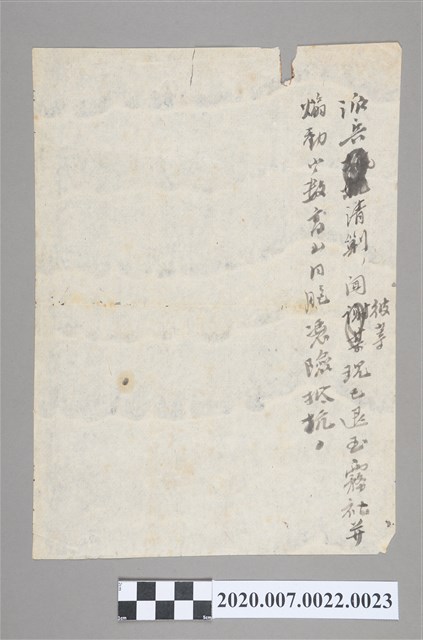 派兵清剿，聞彼等謝某現已退至霧社并
煽動少数高山同胞憑險抵抗。
2020.007.0022.0023